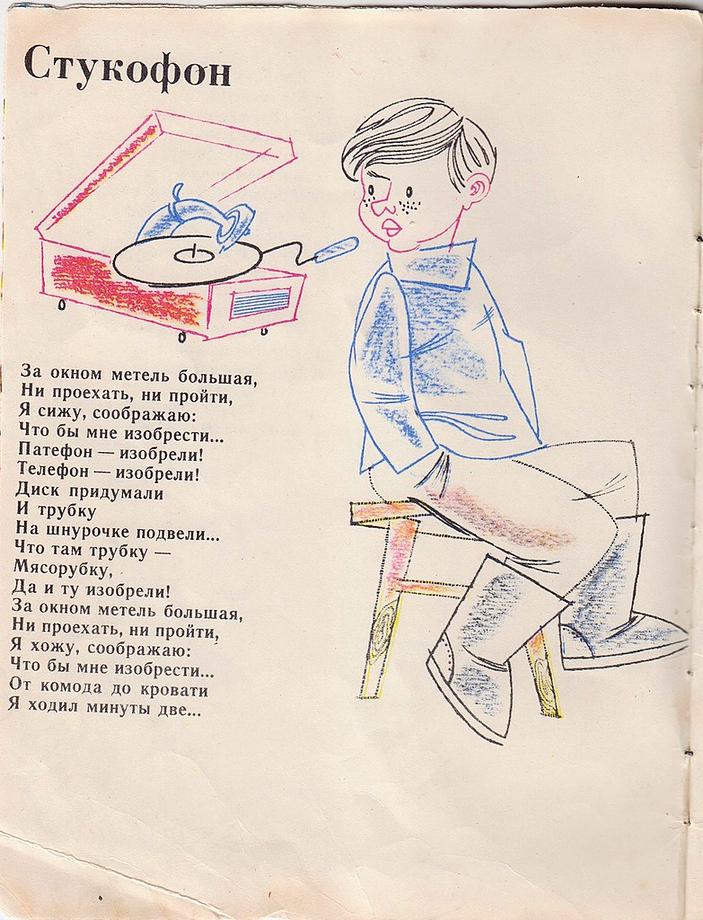 Стукофон
За окном метель большая,
Ни проехать, ни пройти,
Я сижу, соображаю:
Что бы мне изобрести...
Патефон — изобрели!
Телефон — изобрели!
Диск придумали
И трубку
На шнурочке подвели...
Что там трубку —
Мясорубку,
Да и ту изобрели!
За окном метель большая,
Ни проехать, ни пройти,
Я хожу, соображаю:
Что бы мне изобрести...
От комода до кровати
Я ходил минуты две...